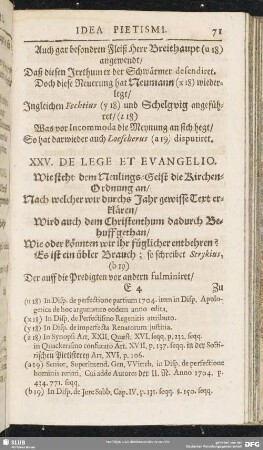 IDEA PIETISMI. 71
Auch gar besondern Fleiß Herr Breithaupt (u 18)
angewendt/
Daß diesen Irrthum er der Schwärmer defendiret.
Doch diese Neuerung hat Neumann (x 18) wieder-
legt/
Ingleichen Fechtius (y 18) und Schelgvig angefüh-
ret/ (z 18)
Was vor Incommoda die Meynung an sich hegt/
So hat darwieder auch Loescherus (a 19) disputiret.
XXV. DE LEGE ET EVANGELIO.
Wie steht dem Neulings-Geist die Kirchen-
Ordnung an/
Nach welcher wir durchs Jahr gewisse Text er-
klären/
Wird auch dem Christenthum dadurch Be-
huff gethan/
Wie oder könnten wir ihr füglicher entbehren?
Es ist ein übler Brauch; so schreibet Strykius,
(b 19)
Der auff die Predigten vor andern fulminiret/
E 4 Zu
(u 18) In Disp. de perfectione partium 1704. item in Disp. Apolo-
getica de hoc argumento eodem anno edita.
(x 18) In Disp. de Perfectissimo Regenitis attributo.
(y 18) In Disp. de imperfecta Renatorum justitia.
(z 18) In Synopsi Art. XXII. Quæst. XVI. seqq. p. 232. seqq.
in Quackerismo confutato Art. XVII. p. 137. seqq. in der Secti-
rischen Pietisterey Art. XVI, p. 106.
(a 19) Senior, Superintend. Gen. VVitteb. in Disp. de perfectione
hominis renati, Cui adde Autores der U. N. Anno 1704. p.
434. 771. seqq.
(b 19) In Disp. de Jure Sabb. Cap. IV. p. 131. seqq. §. 150. seqq.